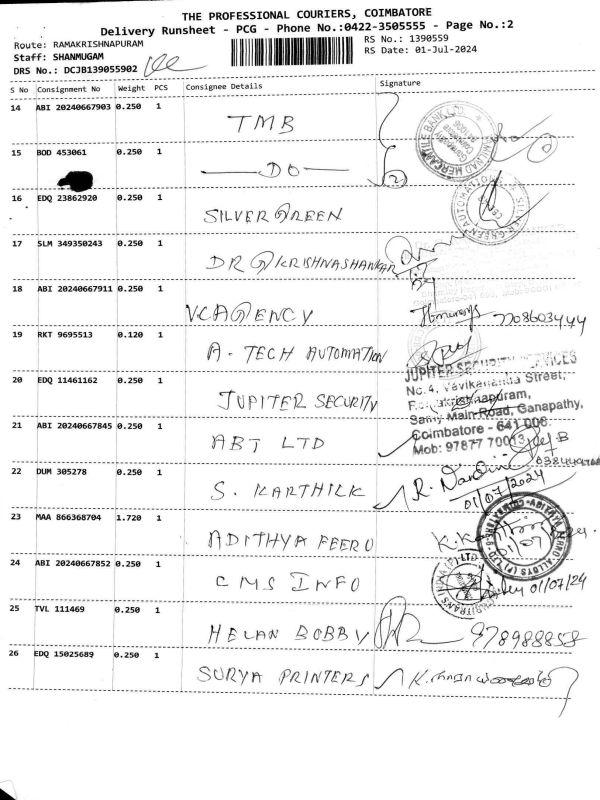 THE PROFESSIONAL COURIERS, COIMBATORE
Delivery Runsheet - PCG - Phone No.:0422-3505555 - Page No.:2
Route: RAMAKRISHNAPURAM
RS No.: 1390559
Staff: SHANMUGAM
RS Date: 01-Jul-2024
DRS No.: DCJB139055902
S No Consignment No Weight PCS Consignee Details Signature
14 ABI 20240667903 0.250 1 TMB
15 BOD 453061 0.250 1 DO 2
16 EDQ 23862920 0.250 1 SILVER GREEN
17 SLM 349350243 0.250 1 DR G KRISHNASHANKAR
18 ABI 20240667911 0.250 1 VCAGENCY 7708603444
19 RKT 9695513 0.120 1 A-TECH AUTOMATION
JUPITER SECURITY SERVICES
No.4, Vavikananda Street,
20 EDQ 11461162 0.250 1 JUPITER SECURITY
Ramakrishnapuram,
Samy Main Road, Ganapathy,
21 ABI 20240667845 0.250 1 ABT LTD
Coimbatore - 641 006.
Mob: 97877 70013
22 DUM 305278 0.250 1 S. KARTHICK R.
01/07/2024
23 MAA 866368704 1.720 1 ADITHYA FEERO
24 ABI 20240667852 0.250 1 CMS INFO 01/07/24
25 TVL 111469 0.250 1 HELAN BOBBY 978988858
26 EDQ 15025689 0.250 1 SURYA PRINTERS K.